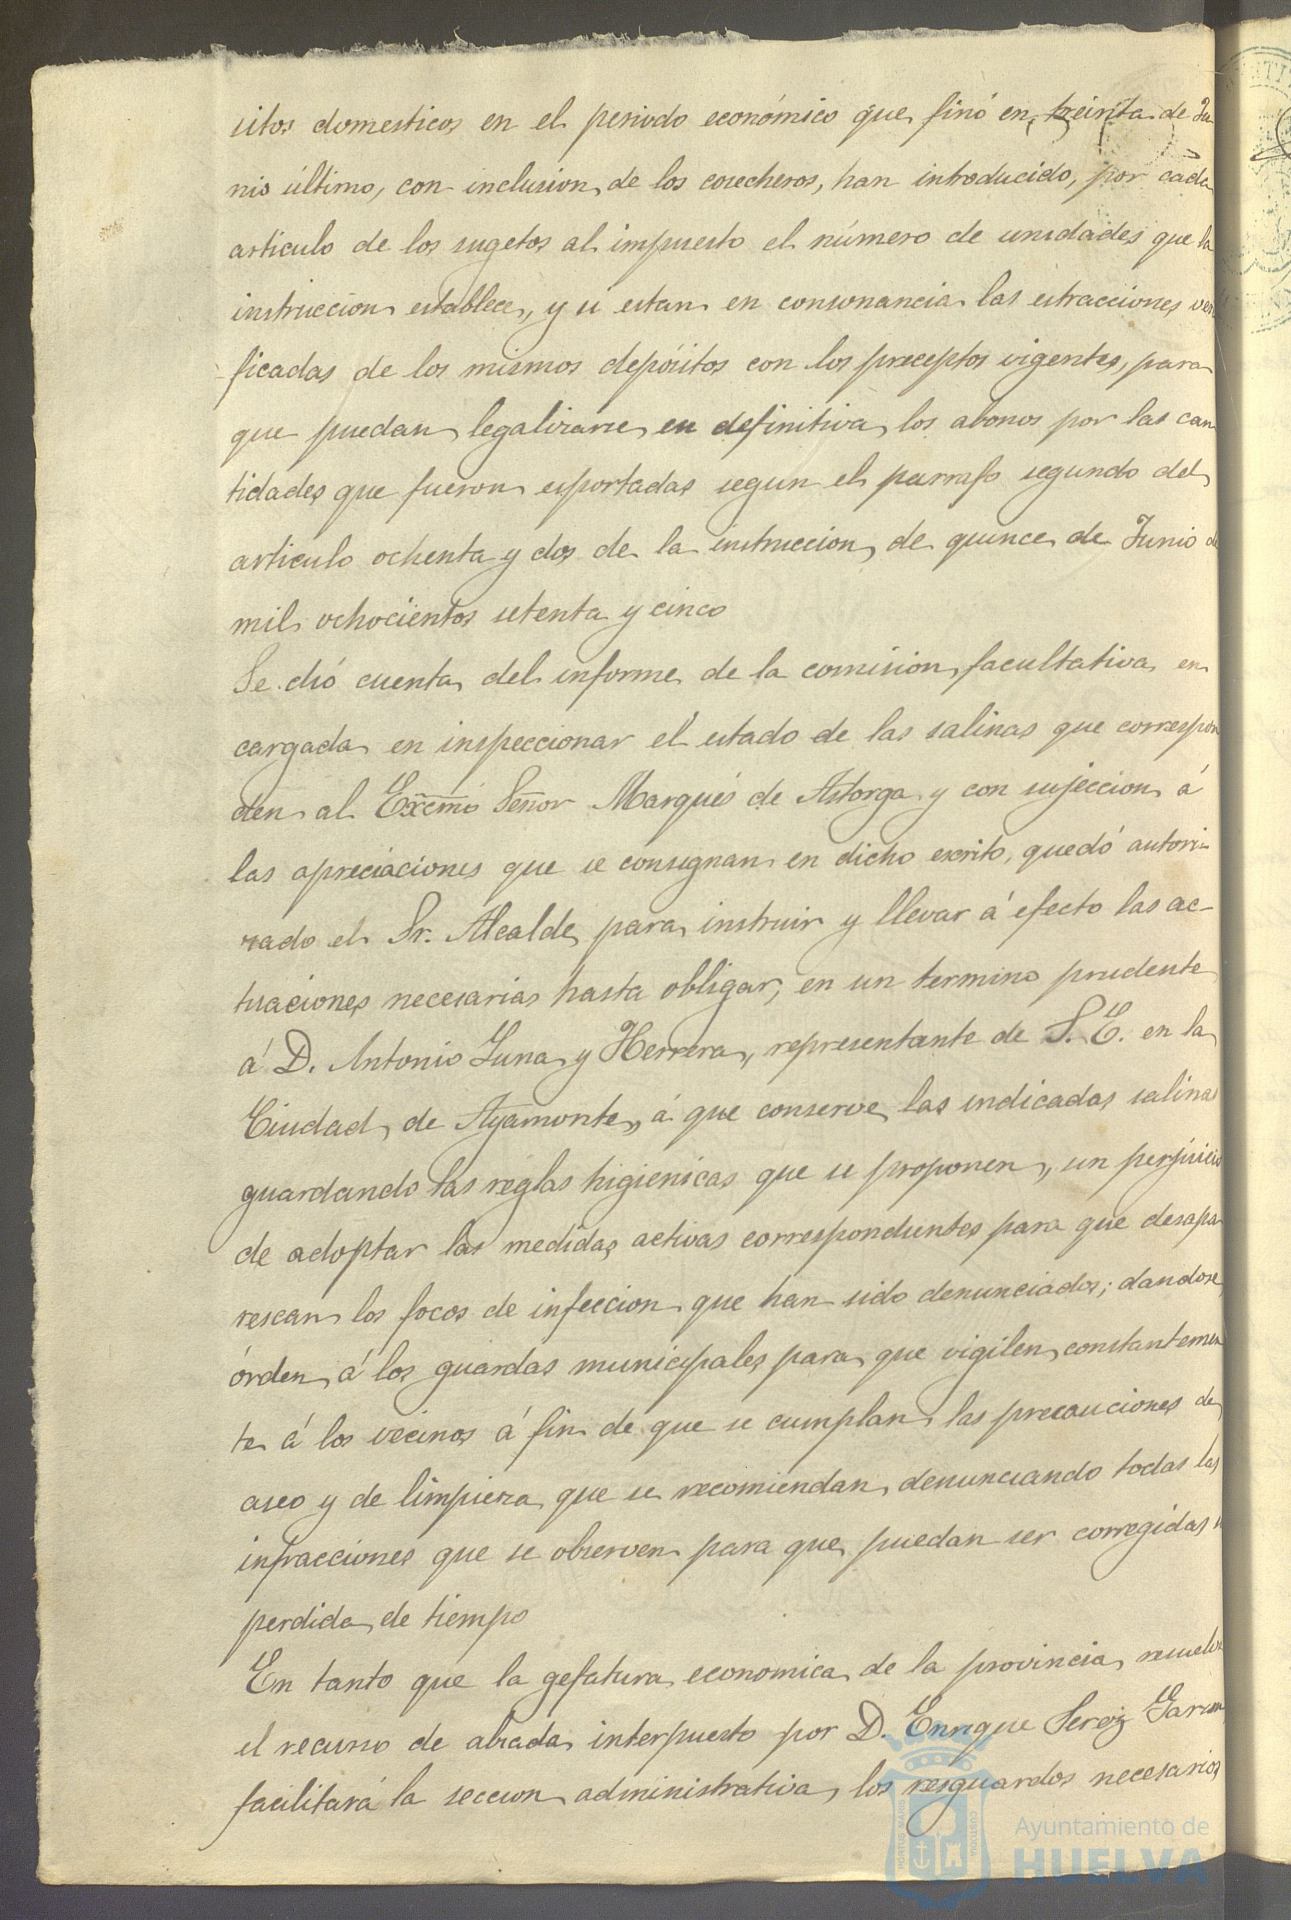 sitos domesticos en el periodo económico que finó en treinta de Ju
nio último, con inclusion de los cosecheros, han introducido, por cada
articulo de los sugetos al impuesto el número de unidades que la
instruccion establece, y si estan en consonancia las estracciones veri
ficadas de los mismos depósitos con los preceptos vigentes, para
que puedan legalizarse en definitiva los abonos por las can
tidades que fueron esportadas segun el parrafo segundo del
articulo ochenta y dos de la instruccion de quince de Junio de
mil ochocientos setenta y cinco
Se dió cuenta del informe de la comision facultativa en
cargada en inspeccionar el estado de las salinas que correspon
den al Excmo Señor Marqués de Astorga y con sujeccion á
las apreciaciones que se consignan en dicho escrito, quedó autori-
zado el Sr. Alcalde para instruir y llevar á efecto las ac-
tuaciones necesarias hasta obligar, en un termino prudente
á D. Antonio Luna y Herrera, representante de S. E. en la
Ciudad de Ayamonte, á que conserve las indicadas salinas
guardando las reglas higienicas que se proponen, sin perjuicio
de adoptar las medidas activas correspondientes para que desapa
rescan los focos de infeccion que han sido denunciados; dandose
órden á los guardas municipales para que vigilen constantemen
te á los vecinos á fin de que se cumplan las precauciones de
aseo y de limpieza que se recomiendan, denunciando todas las
infracciones que se observen para que puedan ser corregidas
perdida de tiempo
En tanto que la gefatura economica de la provincia resuelve
el recurso de alzada interpuesto por D. Enrique
facilitará la seccion administrativa, los resguardos necesarios
PORTUS MARIS
CUSTODIA
Ayuntamiento de
HUELVA